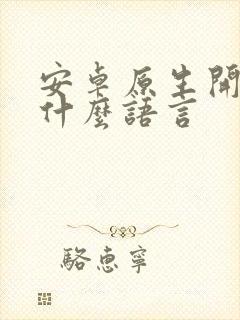 安卓原生開
什麼語言
駱惠寧